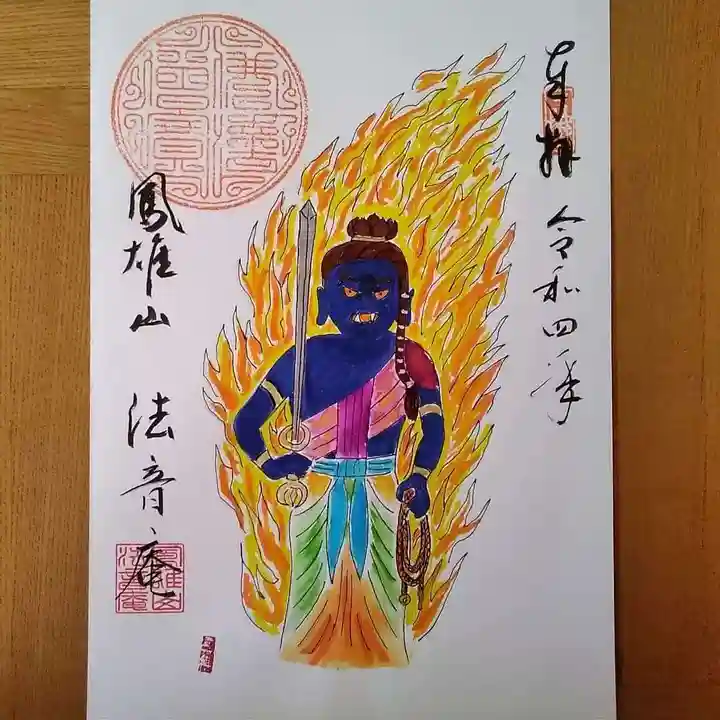 奉拝
令和四年
鳳雄山
法音庵